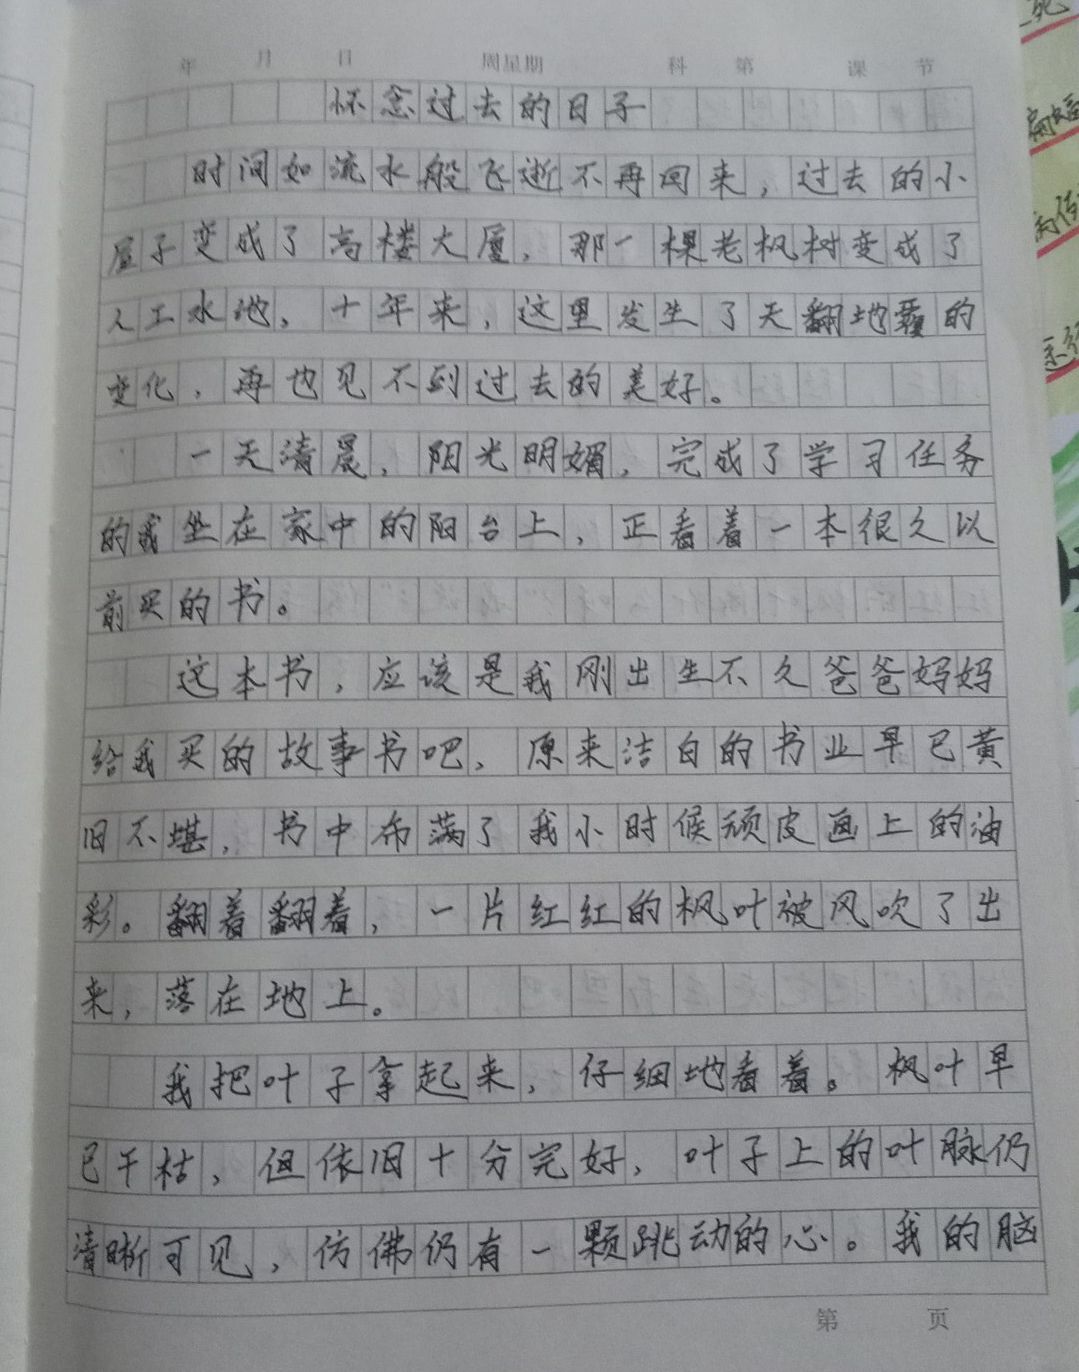 年 月 日 周星期 科 第 课 节
怀念过去的日子
时间如流水般飞逝不再回来，过去的小
屋子变成了高楼大厦，那一棵老枫树变成了
人工水池，十年来，这里发生了天翻地覆的
变化，再也见不到过去的美好。
一天清晨，阳光明媚，完成了学习任务
的我坐在家中的阳台上，正看着一本很久以
前买的书。
这本书，应该是我刚出生不久爸爸妈妈
给我买的故事书吧，原来洁白的书业早已黄
旧不堪，书中布满了我小时候顽皮画上的油
彩。翻着翻着，一片红红的枫叶被风吹了出
来，落在地上。
我把叶子拿起来，仔细地看着。枫叶早
已干枯，但依旧十分完好，叶子上的叶脉仍
清晰可见，仿佛仍有一颗跳动的心。我的脑
第 页